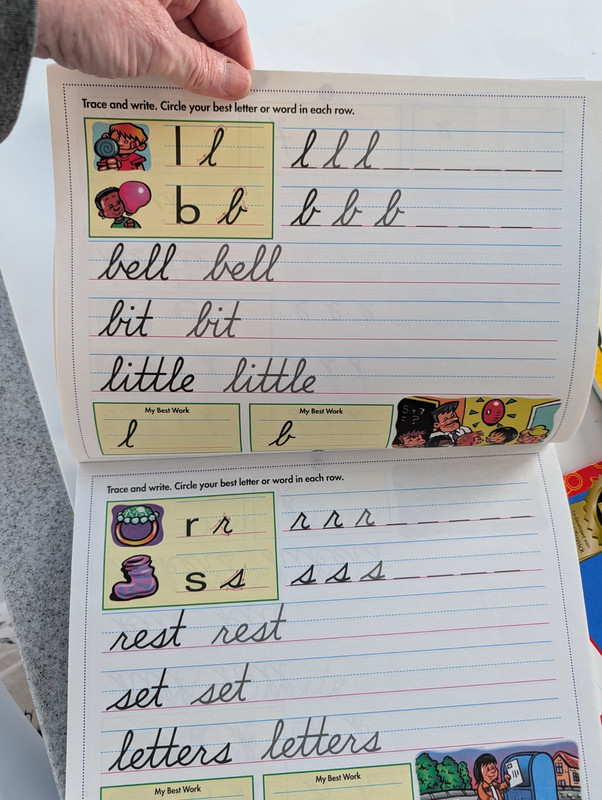 Trace and write. Circle your best letter or word in each row.
l l l l l
b b b b b
bell bell
bit bit
little little
My Best Work My Best Work
l b
Trace and write. Circle your best letter or word in each row.
r r r r r
s s s s s
rest rest
set set
letters letters
My Best Work My Best Work